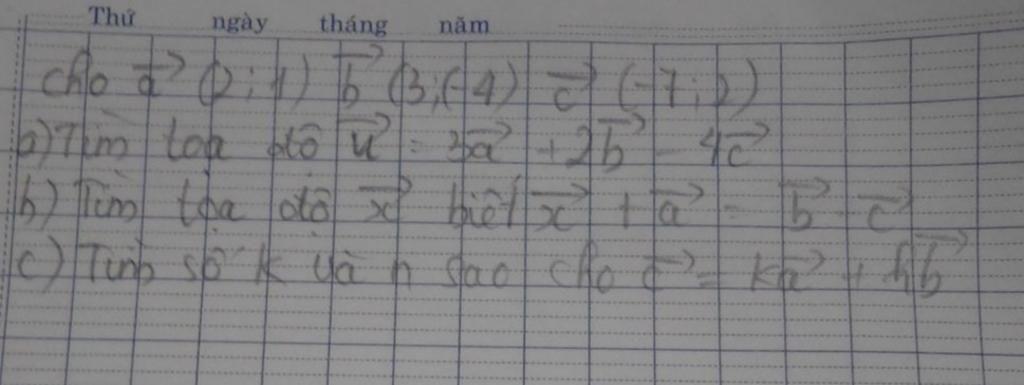 Thứ ngày tháng năm
cho a⃗ (2; 1) b⃗ (3; (-4) c⃗ (-7; 2)
a) Tìm toạ độ u⃗ = 3a⃗ + 2b⃗ - 4c⃗
b) Tìm tọa độ x⃗ biết x⃗ + a⃗ = b⃗ - c⃗
c) Tình số k và n sao cho c⃗ = ka⃗ + hb⃗